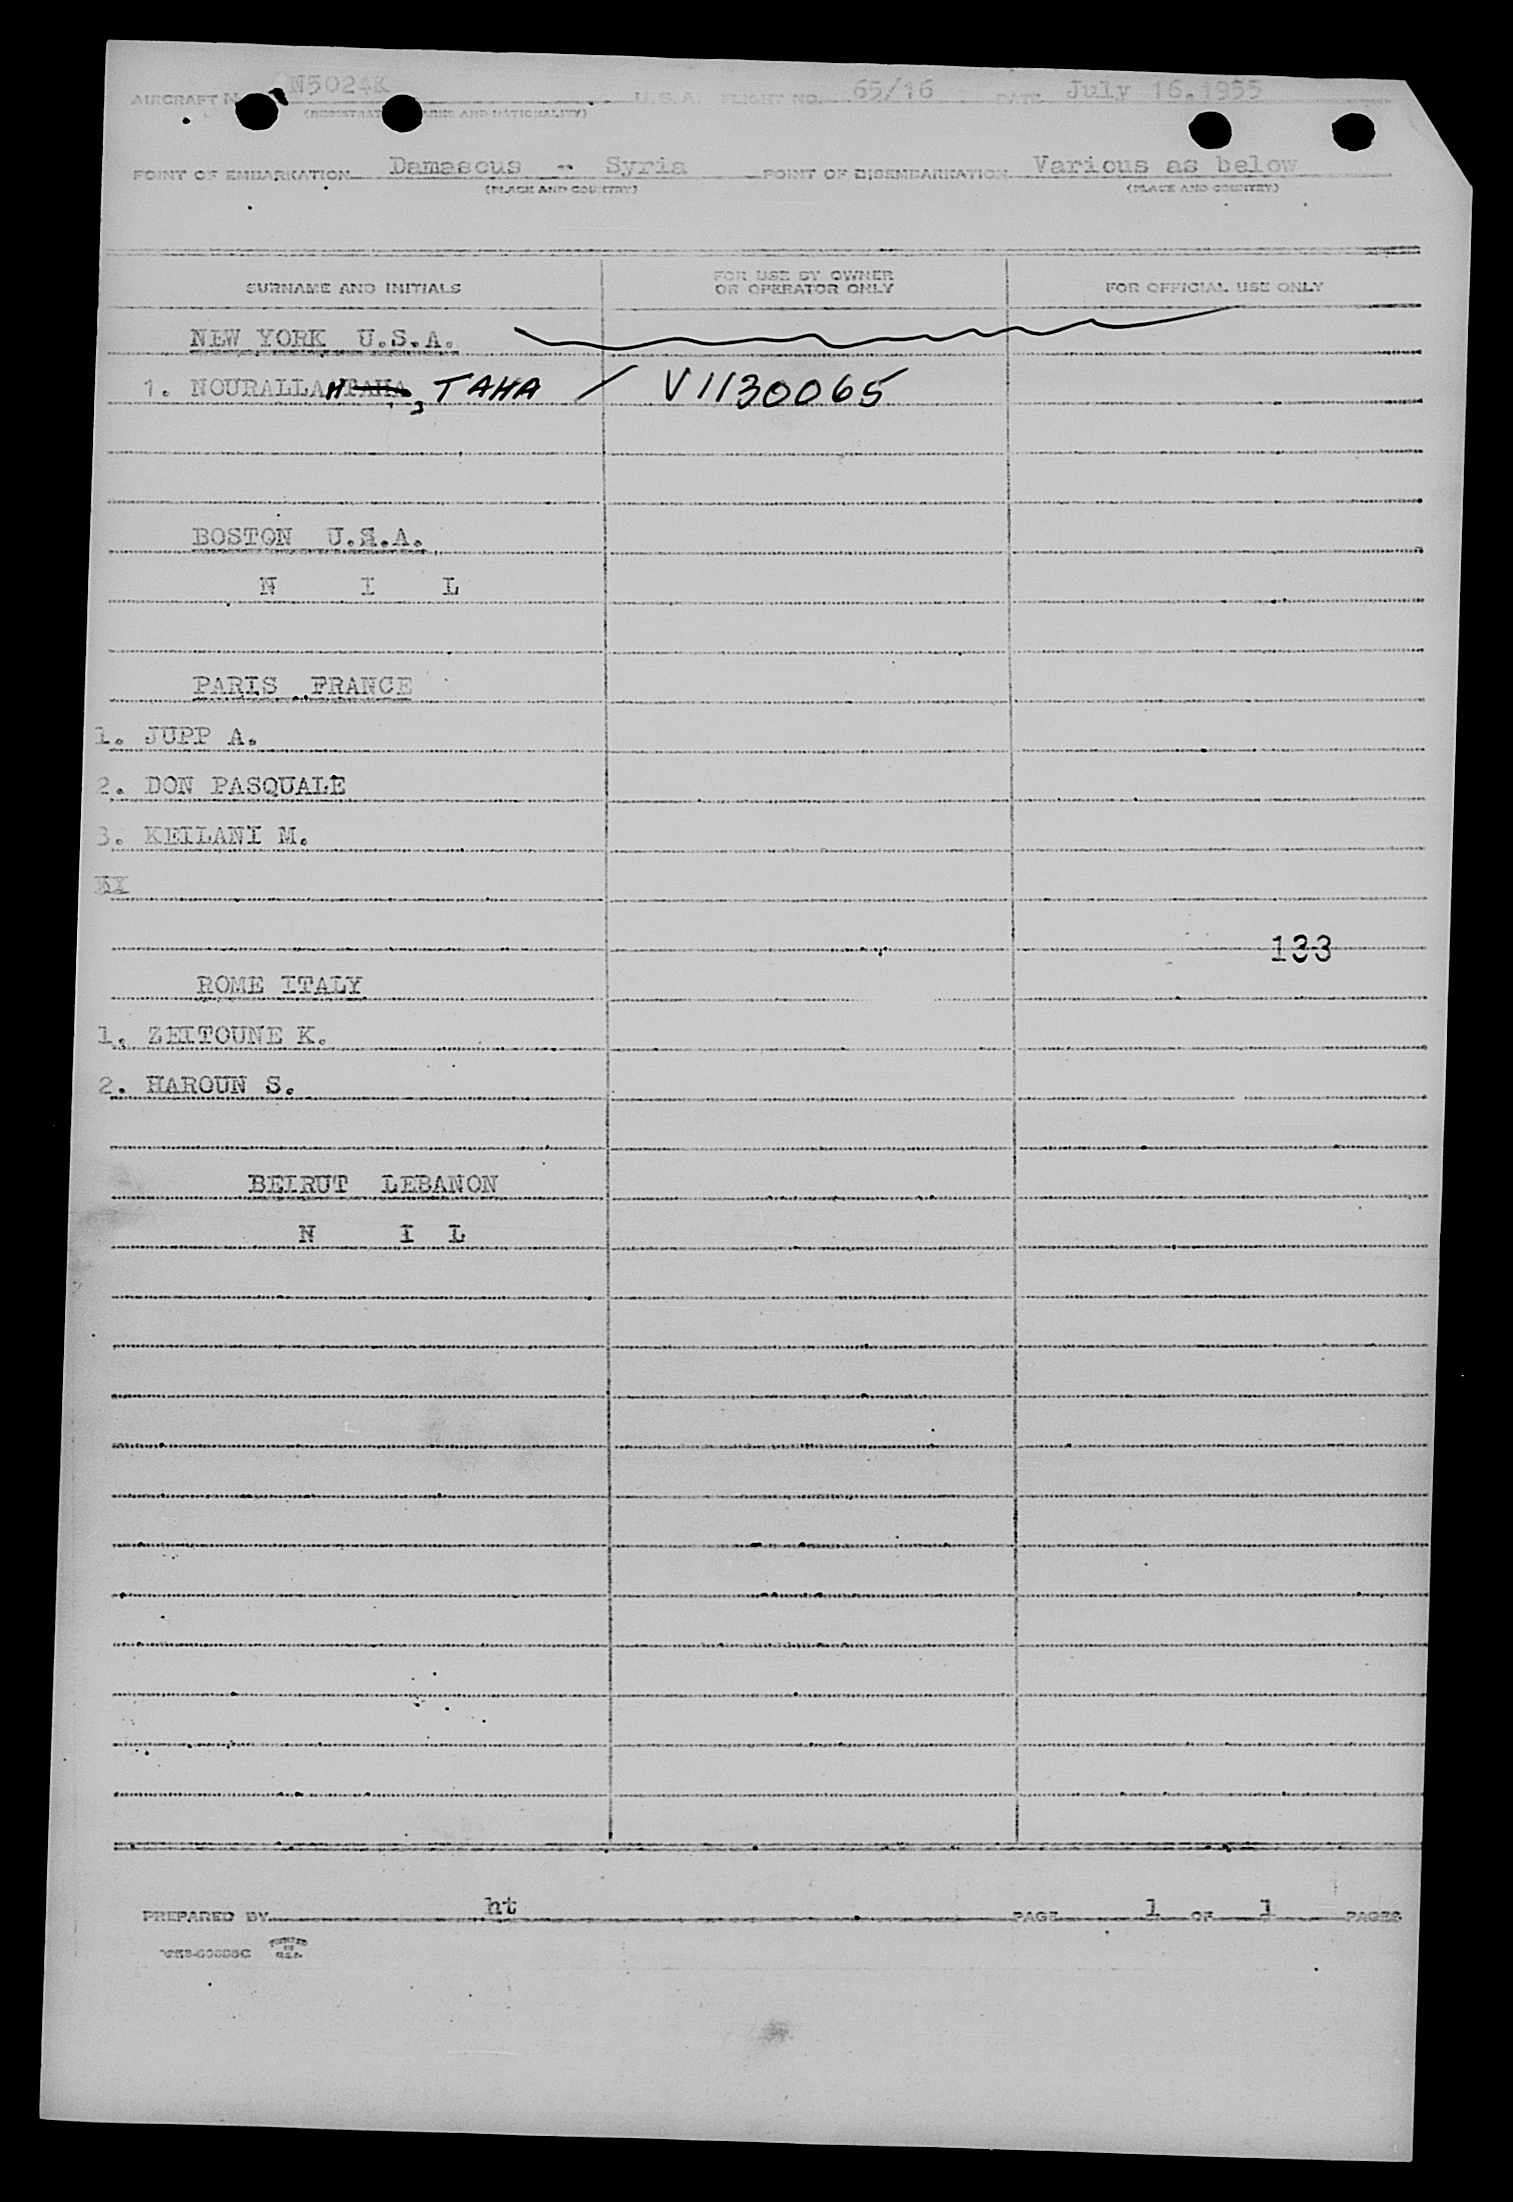 AIRCRAFT N N5024K U.S.A. FLIGHT NO. 65/16 DATE July 16.1955
(REGISTRAT MARKS AND NATIONALITY)
POINT OF EMBARKATION Damascus - Syria POINT OF DISEMBARKATION Various as below
(PLACE AND COUNTRY) (PLACE AND COUNTRY)
SURNAME AND INITIALS FOR USE BY OWNER OR OPERATOR ONLY FOR OFFICIAL USE ONLY
NEW YORK U.S.A.
1. NOURALLAH TAHA, TAHA / V1130065
BOSTON U.S.A.
N I L
PARIS FRANCE
1. JUPP A.
2. DON PASQUALE
3. KEILANI M.
133
ROME ITALY
1. ZEITOUNE K.
2. HAROUN S.
BEIRUT LEBANON
N I L
PREPARED BY ht PAGE 1 OF 1 PAGES
PRINTED IN U.S.A.